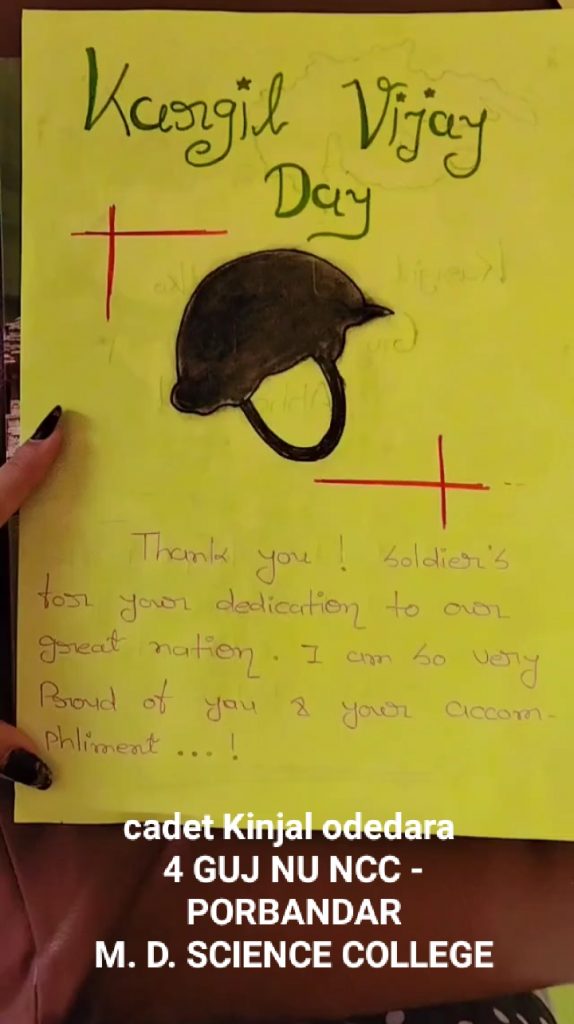 Kargil Vijay
Day
Thank you ! soldier's
for your dedication to our
great nation. I am so very
Proud of you & your accom-
phliment ... !
cadet Kinjal odedara
4 GUJ NU NCC -
PORBANDAR
M. D. SCIENCE COLLEGE